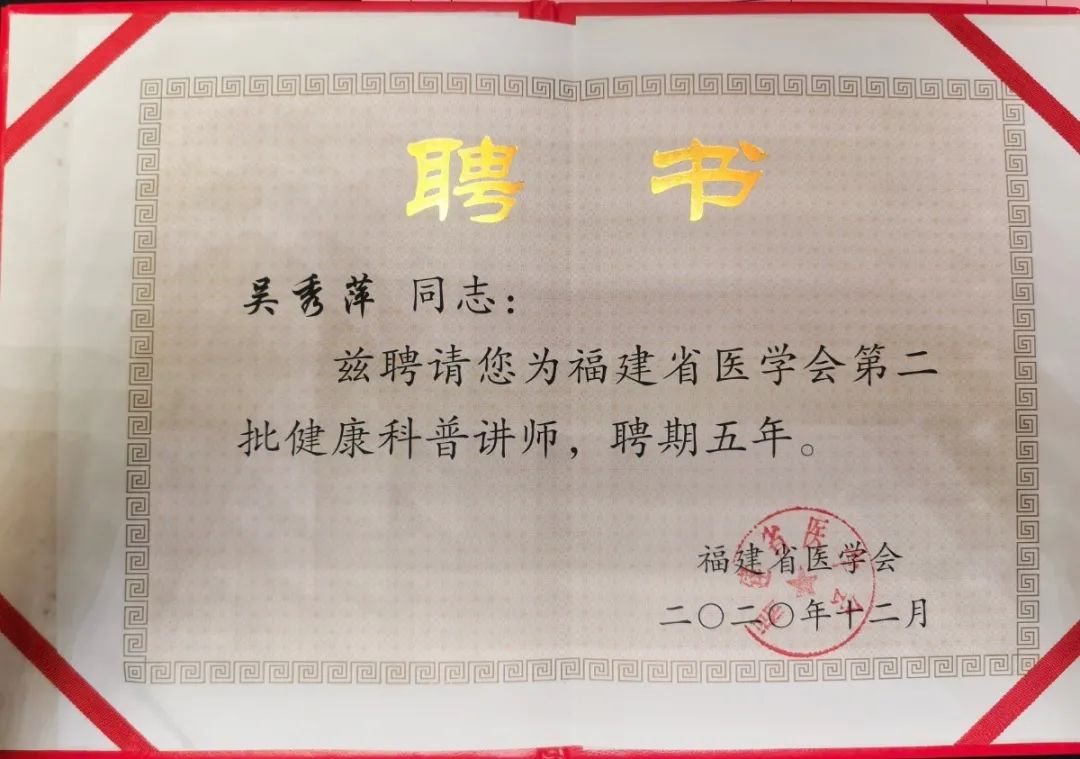 聘书
吴秀萍 同志：
兹聘请您为福建省医学会第二
批健康科普讲师，聘期五年。
福建省医学会
二〇二〇年十二月
福建省医学会